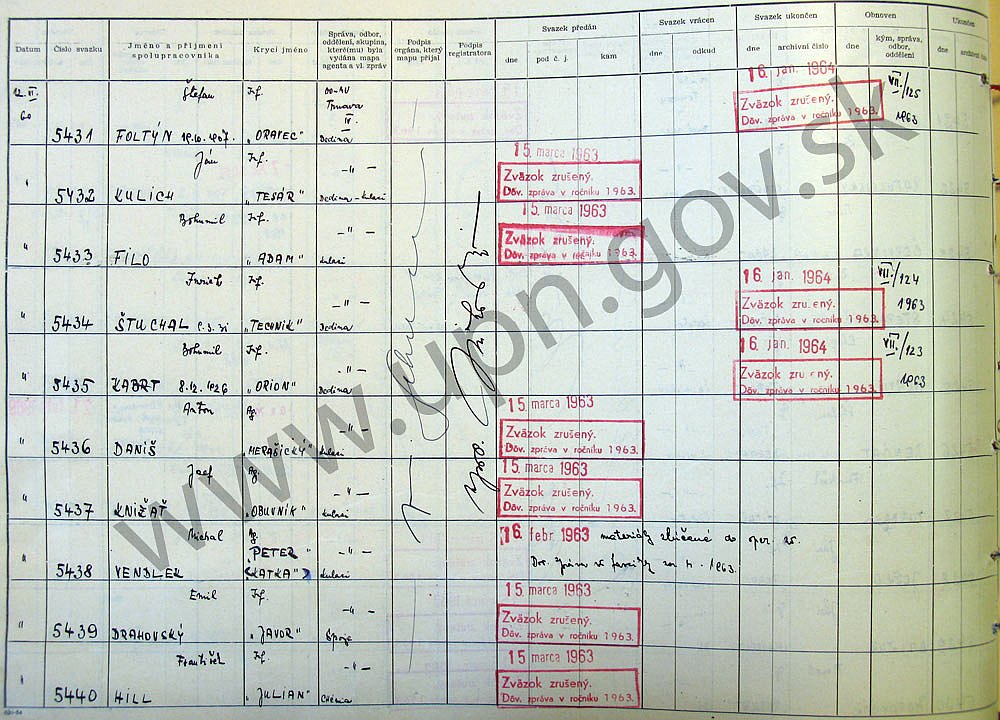 Datum
Číslo svazku
Jméno a příjmení spolupracovníka
Krycí jméno
Správa, odbor, oddělení, skupina, které(mu) byla vydána mapa agenta a vl. zpráv
Podpis orgána, který mapu přijal
Podpis registratora
Svazek předán
dne
pod č. j.
kam
Svazek vrácen
dne
odkud
Svazek ukončen
dne
archivní číslo
Obnoven
dne
kým, správa, odbor, oddělení
Ukončen
dne
archivní číslo
12. VI. 60
5431
Štefan
FOLTÝN 19.10.1907
Inf.
„ORATEC"
OO-MV
Trnava
IV.
Dedina
16. jan. 1964
Zväzok zrušený.
Dôv. zpráva v ročníku 1963.
VII./125
1963
"
5432
Ján
KULICH
Inf.
„TESÁR"
-"-
Dedina-kulaci
15. marca 1963
Zväzok zrušený.
Dôv. zpráva v ročníku 1963.
"
5433
Bohumil
FILO
Inf.
„ADAM"
-"-
kulaci
15. marca 1963
Zväzok zrušený.
Dôv. zpráva v ročníku 1963.
"
5434
ŠTUCHAL
Inf.
„TECHNIK"
-"-
Dedina
16. jan. 1964
Zväzok zrušený.
Dôv. zpráva v ročníku 1963.
VII./124
1963
"
5435
Bohumil
KABRT 8.12.1926
Inf.
„ORION"
-"-
Dedina
16. jan. 1964
Zväzok zrušený.
Dôv. zpráva v ročníku 1963.
VII./123
1963
"
5436
Anton
DANIŠ
Ag.
„MERAŠICKÝ"
-"-
kulaci
15. marca 1963
Zväzok zrušený.
Dôv. zpráva v ročníku 1963.
"
5437
Jozef
KNIŽAŤ
Ag.
„OBUVNÍK"
-"-
kulaci
15. marca 1963
Zväzok zrušený.
Dôv. zpráva v ročníku 1963.
"
5438
Michal
VENDLEK
Ag.
„PETER"
(KATKA")
-"-
kulaci
16. febr 1963 materiály zlúčené do oper. zv.
1963.
"
5439
Emil
DRAHOVSKÝ
Inf.
„JAVOR"
-"-
Spoje
15. marca 1963
Zväzok zrušený.
Dôv. zpráva v ročníku 1963.
"
5440
František
HILL
Inf.
„JULIAN"
-"-
Chémia
15 marca 1963
Zväzok zrušený.
Dôv. zpráva v ročníku 1963.
www.upn.gov.sk